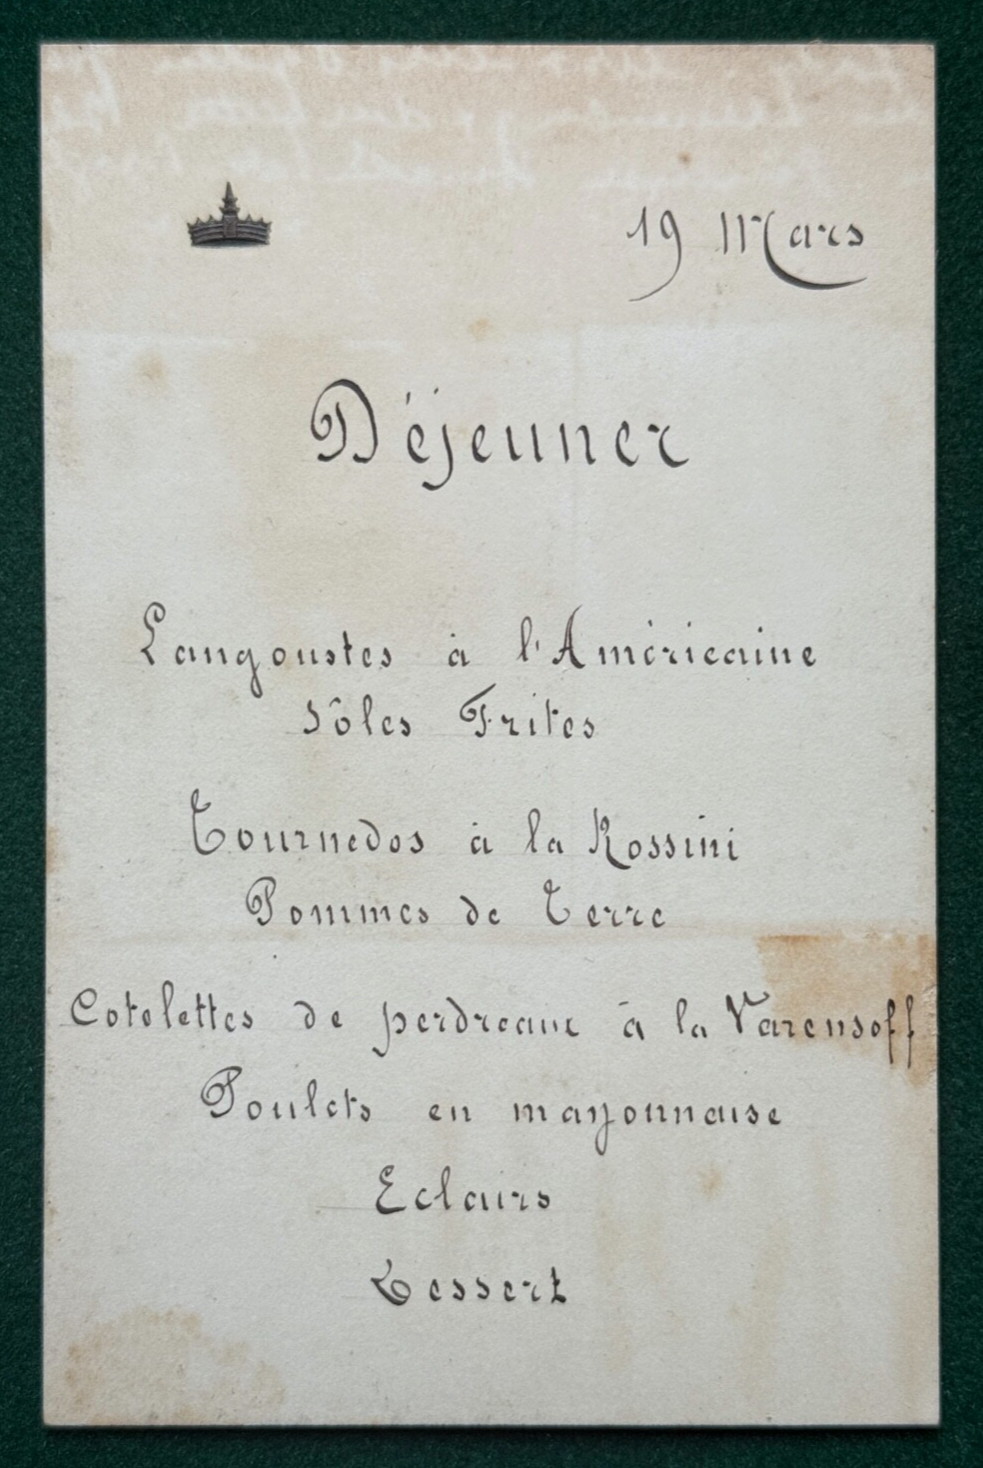 19 Mars
Déjeuner
Langoustes à l'Américaine
Sôles Frites
Tournedos à la Rossini
Pommes de Terre
Cotelettes de perdreaux à la Varensoff
Poulets en mayonnaise
Eclairs
Dessert